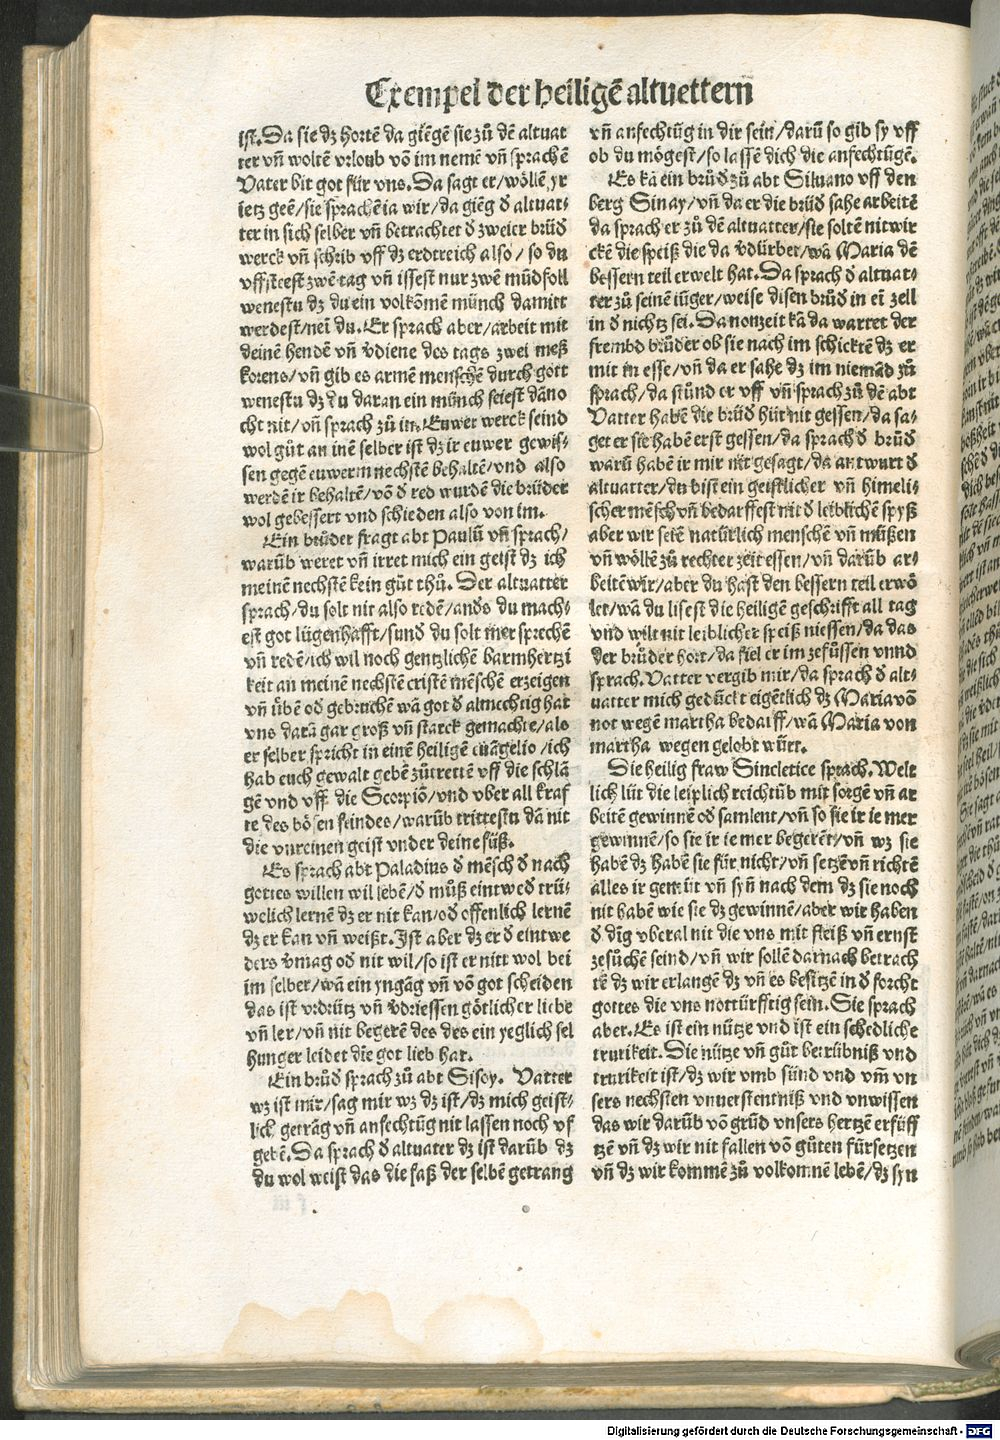 Exempel der heiligē altuettern
ist. Da sie dz hortē da giēgē sie zů dē altuat
ter vñ woltē vrloub vō im nemē vñ sprachē
Vater bit got für vns. Da sagt er/wöllē yr
ietz geē/sie sprachē ia wir/da giēg d̕ altuat-
ter in sich selber vñ betrachtet d̕ zweier brůd̕
werck vñ schrib vff dz erdtreich also/so du
vffsteest zwē tag vñ issest nur zwē mūdfoll
wenestu dz du ein volkōmē münch damitt
werdest/nei du. Er sprach aber/arbeit mit
deinē hendē vñ v̕diene des tags zwei meß
korens/vñ gib es armē menschē durch gott
wenestu dz du daran ein münch seiest dāno
cht nit/vñ sprach zů in. Euwer werck seind
wol gůt an inē selber ist dz ir euwer gewis-
sen gegē euwerm nechstē behaltē/vnd also
werdē ir behaltē/vō d̕ red wurdē die brüder
wol gebessert vnd schieden also von im.
Ein brůder fragt abt Paulū vñ sprach/
warüb weret vñ irret mich ein geist dz ich
meinē nechstē kein gůt thů. Der altuatter
sprach/du solt nit also redē/and̕s du mach-
est got lügenhafft/sund̕ du solt mer sprechē
vñ redē/ich wil noch gentzlichē barmhertzi
keit an meinē nechstē cristē mēschē erzeigen
vñ übē od̕ gebruchē wā got d̕ almechtig hat
vns darā gar groß vñ starck gemachte/als
er selber spricht in einē heiligē euāgelio/ich
hab euch gewalt gebē zůtrettē vff die schlā
gē vnd vff die Scorpiō/vnd vber all kraf
te des bösen feindes/warüb trittestu dā nit
die vnreinen geist vnder deine füß.
Es sprach abt Paladius d̕ mēsch d̕ nach
gottes willen wil lebē/d̕ můß eintwed̕ trü-
welich lernē dz er nit kan/od̕ offenlich lernē
dz er kan vñ weißt. Ist aber dz er d̕ eintwe
ders v̕mag od̕ nit wil/so ist er nitt wol bei
im selber/wā ein yngāg vñ vō got scheiden
das ist v̕drütz vñ v̕driessen götlicher liebe
vñ ler/vñ nit begerē des des ein yeglich sel
hunger leidet die got lieb hat.
Ein brůd̕ sprach zů abt Sisoy. Vatter
wz ist mir/sag mir wz dz ist/dz mich geist-
lich geträg vñ anfechtūg nit lassen noch vf
gebē. Da sprach d̕ altuater dz ist darüb dz
du wol weist das die faß der selbē getrang
vñ anfechtūg in dir sein/darū so gib sy vff
ob du mögest/so lassē dich die anfechtūgē.
Es kā ein brůd̕ zů abt Siluano vff den
berg Sinay/vñ da er die brüd̕ sahe arbeitē
da sprach er zů dē altuatter/sie soltē nit wir
ckē die speiß die da v̕dürbet/wā Maria dē
bessern teil erwelt hat. Da sprach d̕ altuat-
ter zů seinē iüger/weise disen brůd̕ in ei zell
in d̕ nichtz sei. Da nonzeit kā da wartet der
frembd brůder ob sie nach im schicktē dz er
mit in esse/vñ da er sahe dz im niemād zů
sprach/da stůnd er vff vñ sprach zů dē abt
Vatter habē die brüd̕ hüt nit gessen/da sa-
get er sie habē erst gessen/da sprach d̕ brůd̕
warū habē ir mir nit gesagt/da antwurt d̕
altuatter/du bist ein geistlicher vñ himeli-
scher mēsch vñ bedarffest nit d̕ leiblichē spyß
aber wir seiē natürlich menschē vñ müßen
vñ wöllē zů rechter zeit essen/vñ darüb ar-
beitē wir/aber du hast den bessern teil erwö
let/wā du lisest die heiligē geschrifft all tag
vnd wilt nit leiblicher speiß niessen/da das
der brůder hort/da fiel er im zefüssen vnnd
sprach. Vatter vergib mir/da sprach d̕ alt-
uatter mich gedūckt eigētlich dz Maria vō
not wegē martha bedarff/wā Maria von
martha wegen gelobt würt.
Die heilig fraw Sincletice sprach. Welt
lich lüt die leiplich reichtüb mit sorgē vñ ar
beitē gewinnē od̕ samlent/vñ so sie ir ie mer
gewinnē/so sie ir ie mer begerēt/vñ wz sie
habē dz habē sie für nicht/vñ setzē vñ richtē
alles ir gemüt vñ syñ nach dem dz sie noch
nit habē wie sie dz gewinnē/aber wir haben
d̕ dīg vberal nit die vns mit fleiß vñ ernst
zesůchē seind/vñ wir sollē darnach betrach
tē dz wir erlangē dz vñ es besitzē in d̕ forcht
gottes die vns notturfftig sein. Sie sprach
aber. Es ist ein nütze vnd ist ein schedliche
trurikeit. Die nütze vñ gůt betrübniß vnd
trurikeit ist/dz wir vmb sünd vnd vm̄ vn
sers nechsten vnuerstentniß vnd vnwissen
das wir darüb vō grūd vnsers hertzē erfüff
tzē vñ dz wir nit fallen vō gůten fürsetzen
vñ dz wir kommē zů volkomnē lebē/dz syn
Digitalisierung gefördert durch die Deutsche Forschungsgemeinschaft - DFG